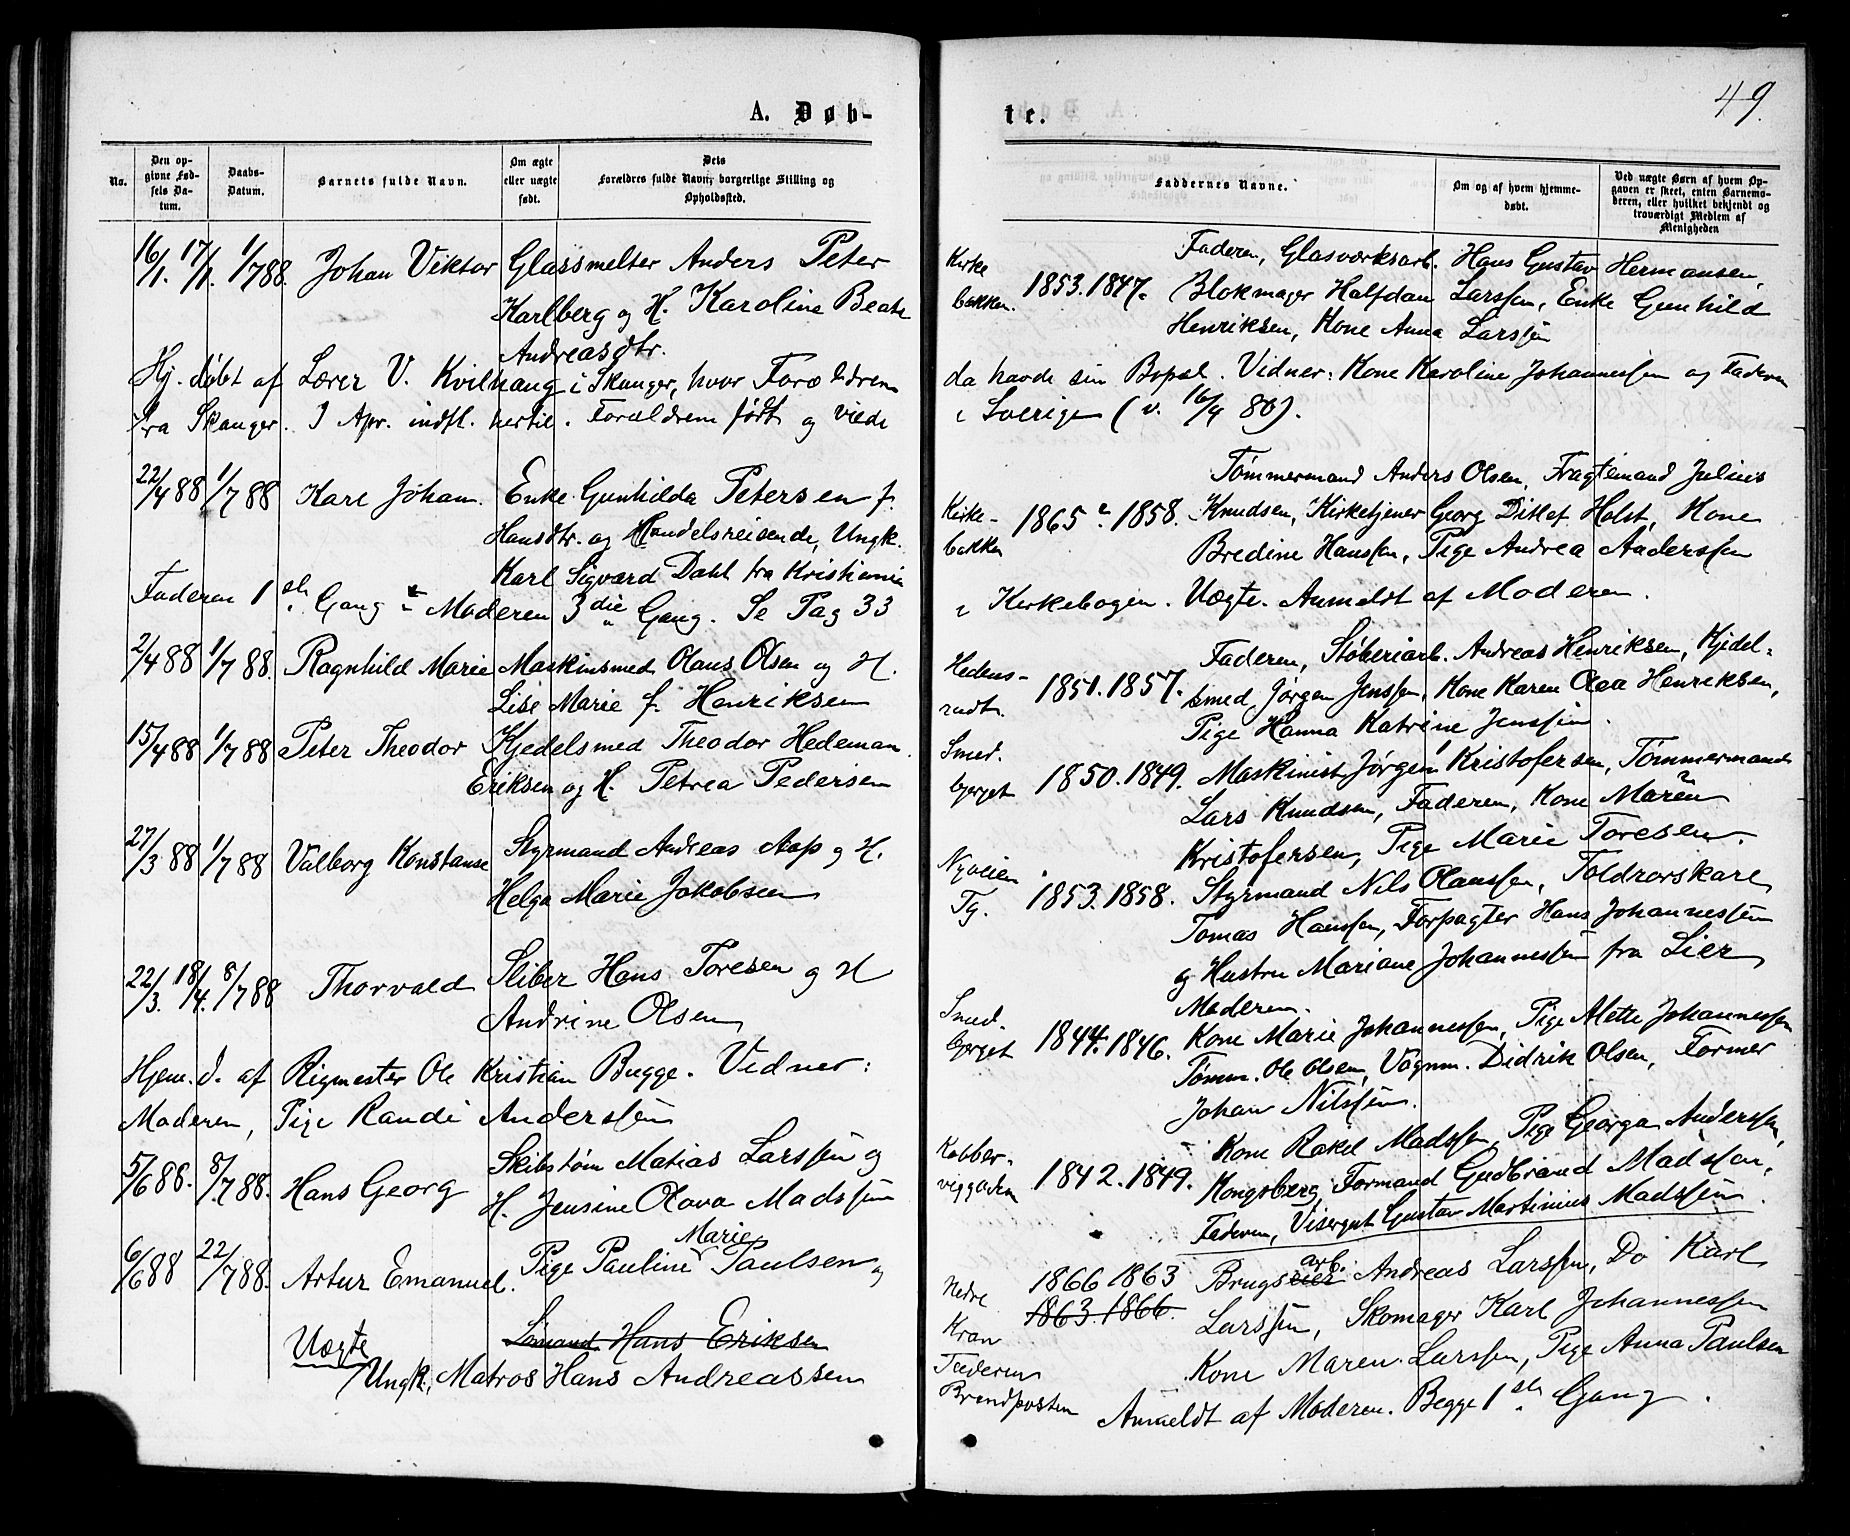 49.
A. Døb-
te.
No.
Den op-
givne Fød-
sels Da-
tum.
Daabs-
Datum.
Barnets fulde Navn.
Om ægte
eller uægte
født.
Dets
Forældres fulde Navn, borgerlige Stilling og
Opholdssted.
Faddernes Navne.
Om og af hvem hjemme-
døbt.
Ved uægte Børn af hvem Op-
gaven er skeet, enten Barnemo-
deren, eller hvilket bekjendt og
troværdigt Medlem af
Menigheden
16/1. 17/1. 1/7 88. Johan Viktor Glassmelter Anders Peter
Karlberg og H. Karoline Beate
Andreasdtr.
Hj. døbt af Lærer V. Kvilhaug i Skanger, hvor Forældrene
fra Skanger. I Apr. indfl. hertil. Forældrene født og viede
Kirke
bakken. 1853. 1847.
Faderen, Glasværksarb. Hans Gustav Hermansen,
Blokmager Halfdan Larssen, Enke Gunhild
Henriksen, Kone Anna Larssen
da havde sin Bopæl. Vidner: Kone Karoline Johannessen og Faderen
i Sverige (v. 16/4 80).
22/4 88 1/7 88 Karl Johan. Enke Gunhilda Petersen f.
Hansdtr. og Handelsreisende, Ungk.
Karl Sigvard Dahl fra Kristiania
Faderen 1ste Gang Moderen 3die Gang. Se Pag 33
Kirke-
bakken 1865 1858.
Tømmermand Anders Olsen, Fragtemand Julius
Knudsen, Kirketjener Georg Ditlef Holst, Kone
Bredine Hanssen, Pige Andrea Anderssen
i Kirkebogen. Uægte. Anmeldt af Moderen.
2/4 88 1/7 88. Ragnhild Marie Maskinsmed Olaus Olsen og H.
Lise Marie f. Henriksen
Hedens-
rudt. 1851. 1857.
Faderen, Støberiarb. Andreas Henriksen, Kjedel-
smed Jørgen Jenssen, Kone Karen Olea Henriksen,
Pige Hanna Katrine Jenssen.
15/4 88 1/7 88 Peter Theodor Kjedelsmed Theodor Hedeman
Eriksen og H. Petrea Pedersen
Smed.
bjerget 1850. 1849.
Maskinist Jørgen Kristofersen, Tømmermand
Lars Knudsen, Faderen, Kone Maren
Kristofersen, Pige Marie Toresen.
27/3 88 1/7 88 Valborg Konstanse Styrmand Andreas Aap og H.
Helga Marie Jakobsen
Nyveien
Tg. 1853. 1858.
Styrmand Nils Olaussen, Toldrorskarl
Tomas Hanssen, Forpagter Hans Johannessen
og Hustru Mariane Johannessen fra Lier
Moderen.
22/3. 18/4. 8/7 88 Thorvald Sliber Hans Toresen og H
Andrine Olsen
Hjem. d. af Rigmester Ole Kristian Bugge. Vidner:
Moderen, Pige Randi Anderssen
Smed.
bjerget 1844. 1846.
Kone Marie Johannessen, Pige Mette Johannessen
Tømm. Ole Olsen, Vognm. Didrik Olsen, Former
Johan Nilssen.
5/6 88. 8/7 88. Hans Georg Skibstøm Matias Larssen og
H. Jensine Olava Madssen
Kobber-
veggaden 1842. 1849.
Kone Rakel Madssen, Pige Georga Anderssen,
Kongsberg, Formand Gudbrand Madssen,
Faderen, Visergut Gustav Martinius Madssen.
6/6 88 22/7 88. Artur Emanuel. Pige Pauline Marie Paulsen og
Sømand Hans Eriksen
Uægte
Ungk. Matros Hans Andreassen
Nedre
Kran
Faderen
Brandposten
1866 1863
1863. 1866.
Brugseier arb. Andreas Larssen, Do Karl
Larssen, Skomager Karl Johannessen
Kone Maren Larssen, Pige Anna Paulsen
Anmeldt af Moderen. Begge 1ste Gang.